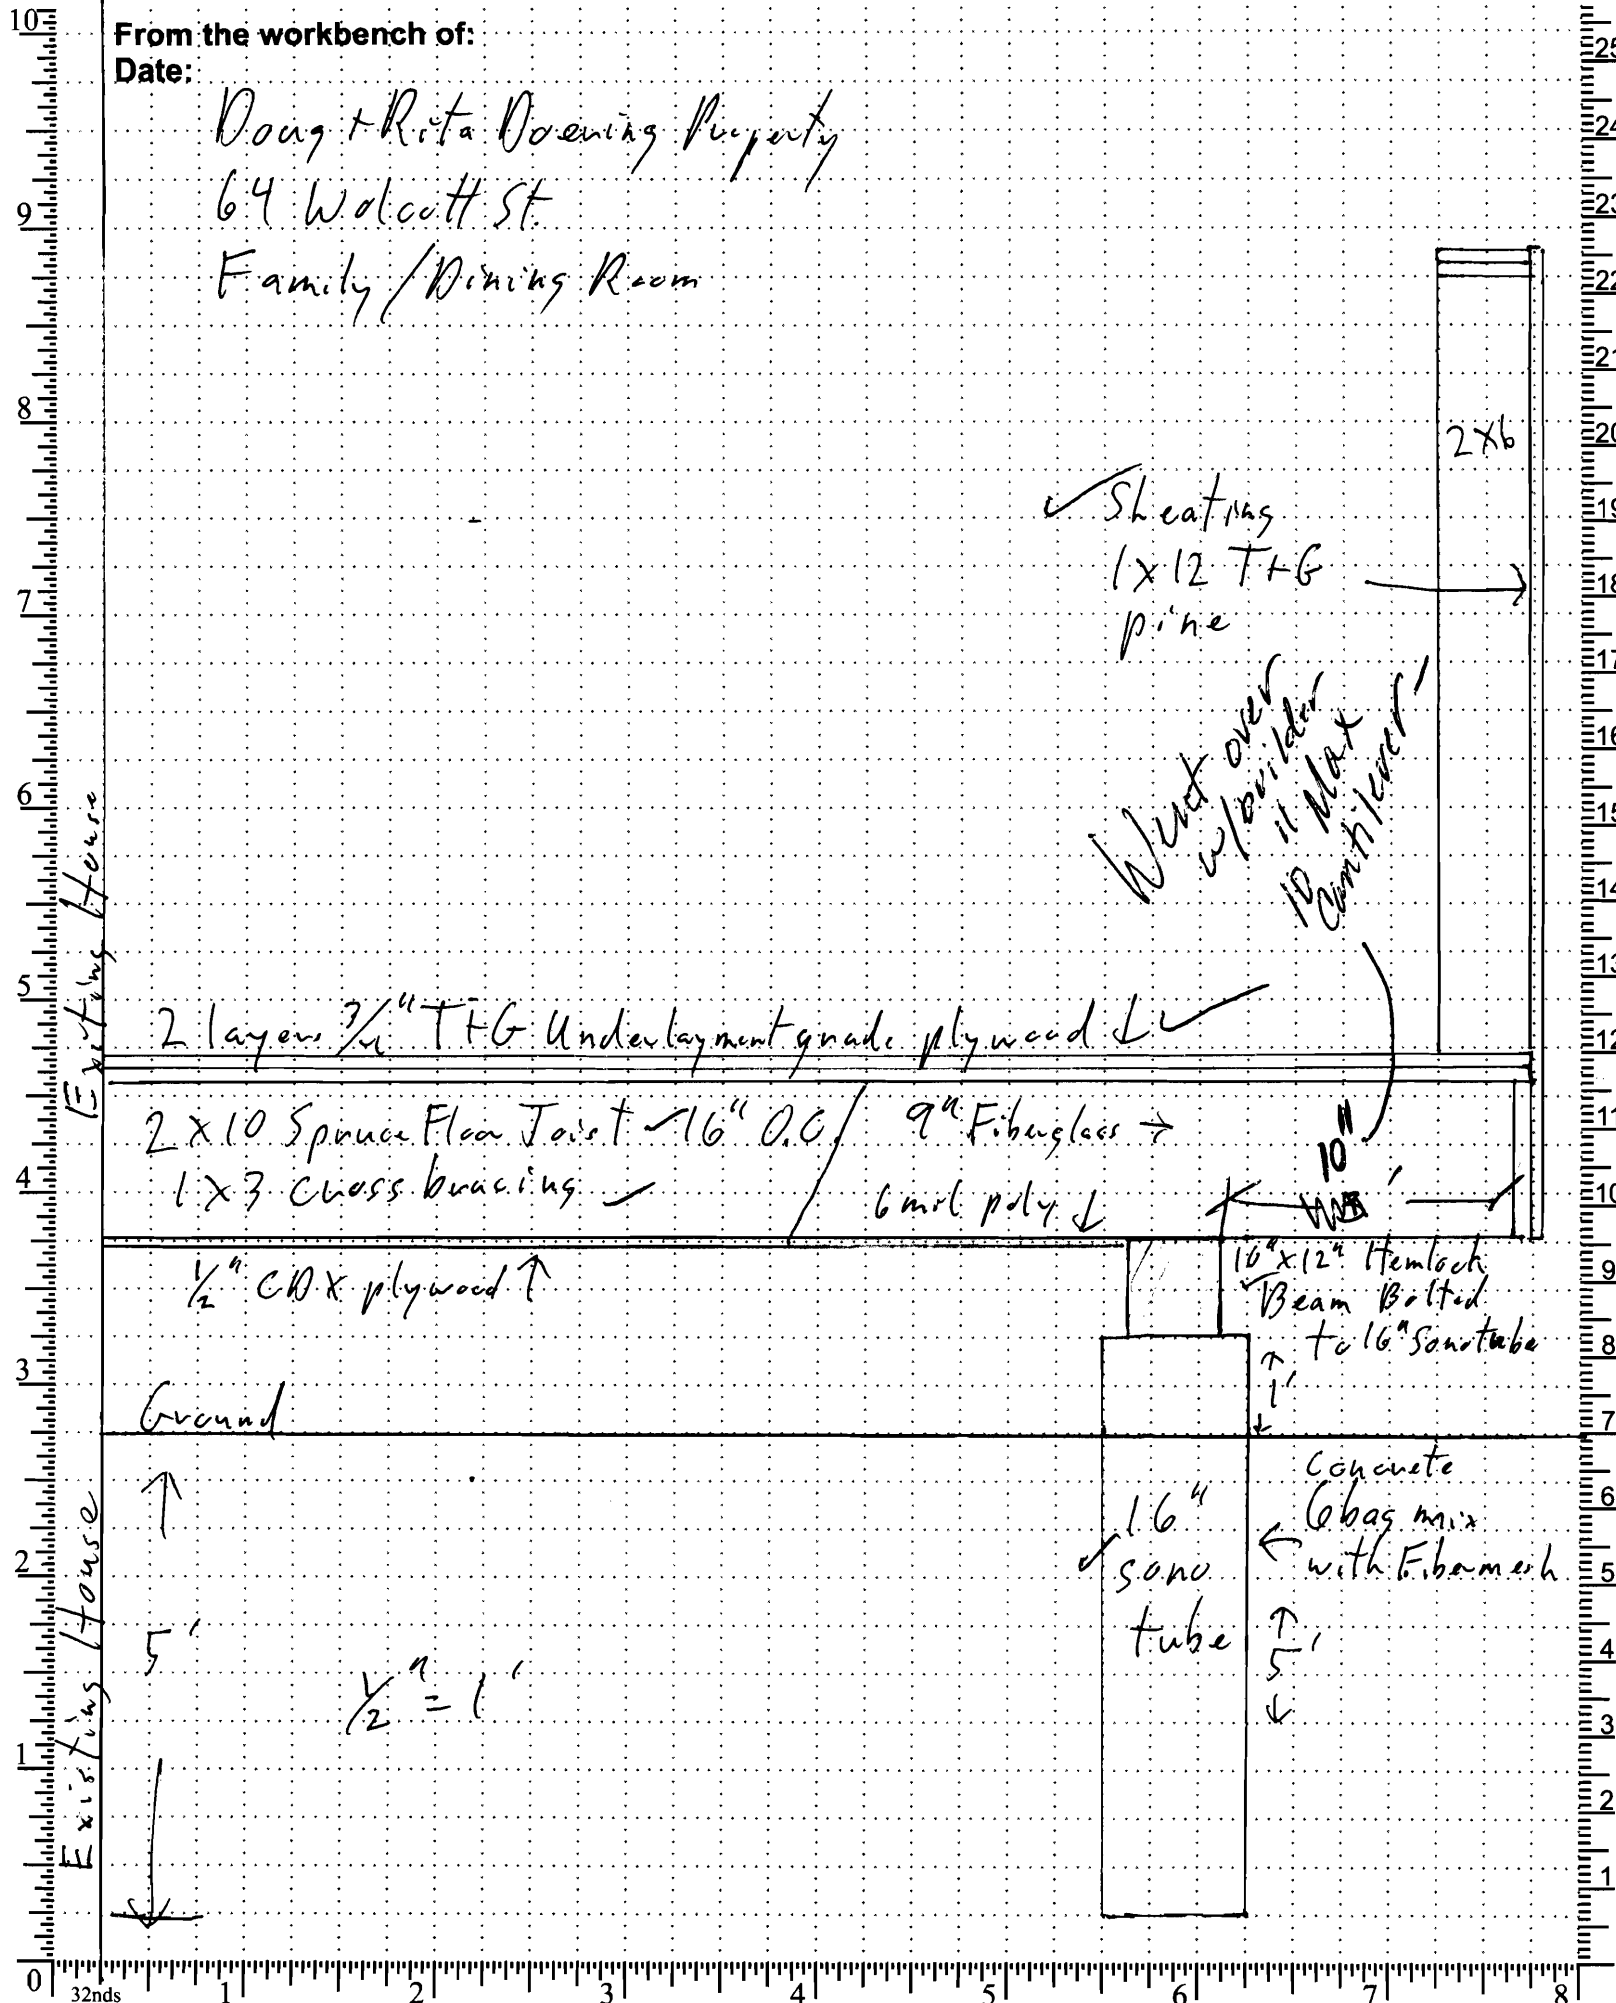 From the workbench of:
Date:
Doug + Rita Doening Property
64 Wolcott St.
Family / Dining Room
2x6
Sheating
1x12 T+G
pine
Went over
w/builder
10" Max
Cantilever
Existing House
2 layers 3/4" T+G Underlayment grade plywood ↓
2x10 Spruce Floor Joist 16" O.C. / 9" Fiberglass →
1x3 cross bracing
6 mil poly ↓
10"
1/2" CDX plywood ↑
10" x 12" Hemlock
Beam Bolted
to 16" Sonotube
1'
Ground
Concrete
6 bag mix
with Fibermesh
16"
sono
tube
5'
5'
1/2" = 1'
Existing House
10
9
8
7
6
5
4
3
2
1
0
32nds
1
2
3
4
5
6
7
8
25
24
23
22
21
20
19
18
17
16
15
14
13
12
11
10
9
8
7
6
5
4
3
2
1